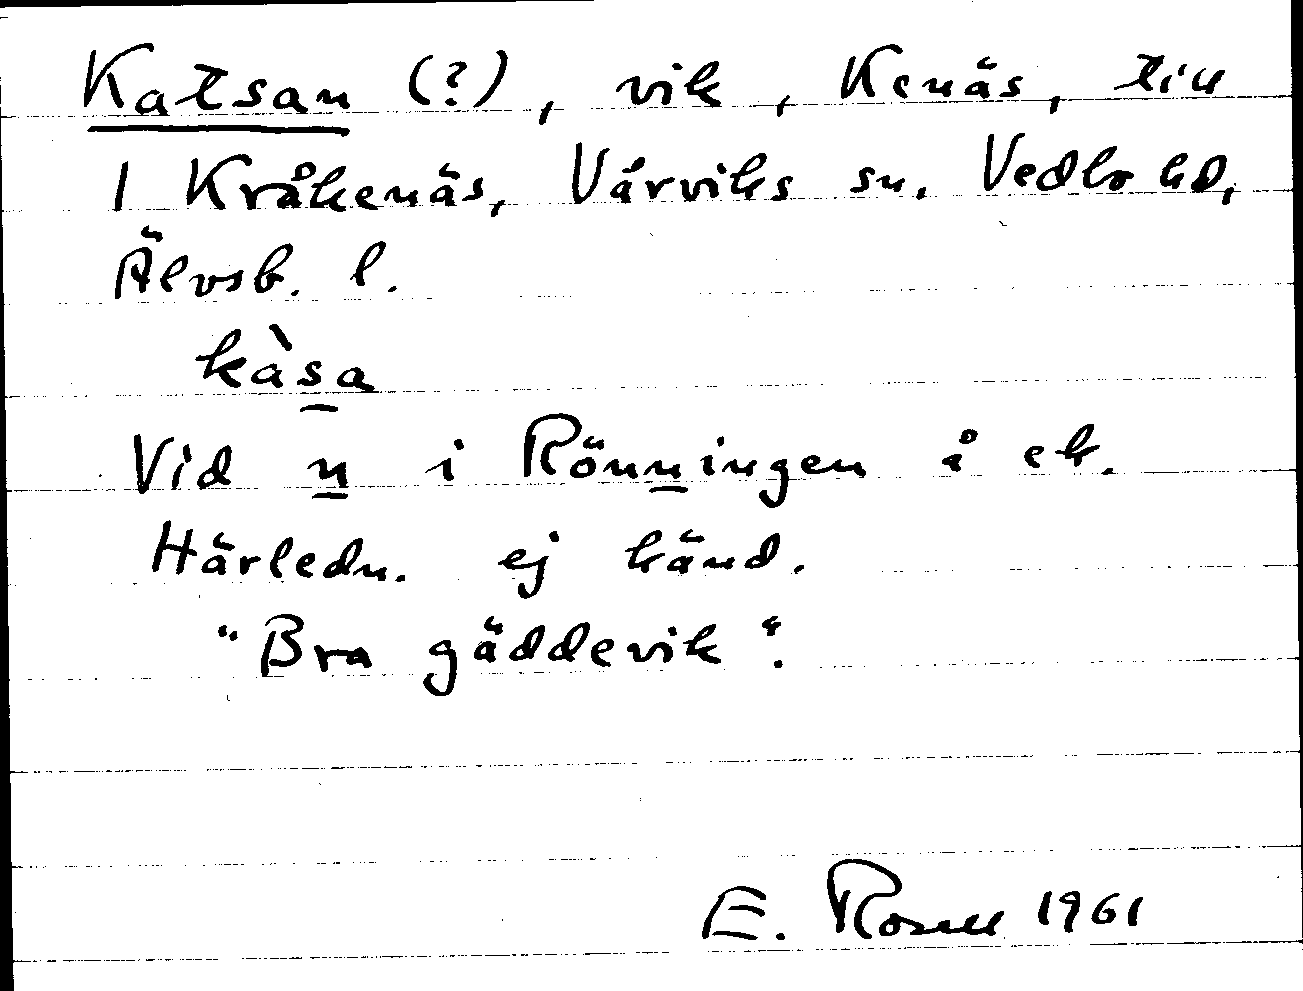 Katsan (?), vik, Kenäs, till
1 Kråkenäs, Vårviks sn. Vedbo hd,
Älvsb. l.
kàsa
Vid n i Rönningen å ek.
Härledn. ej känd.
"Bra gäddevik".
E. Rosell 1961